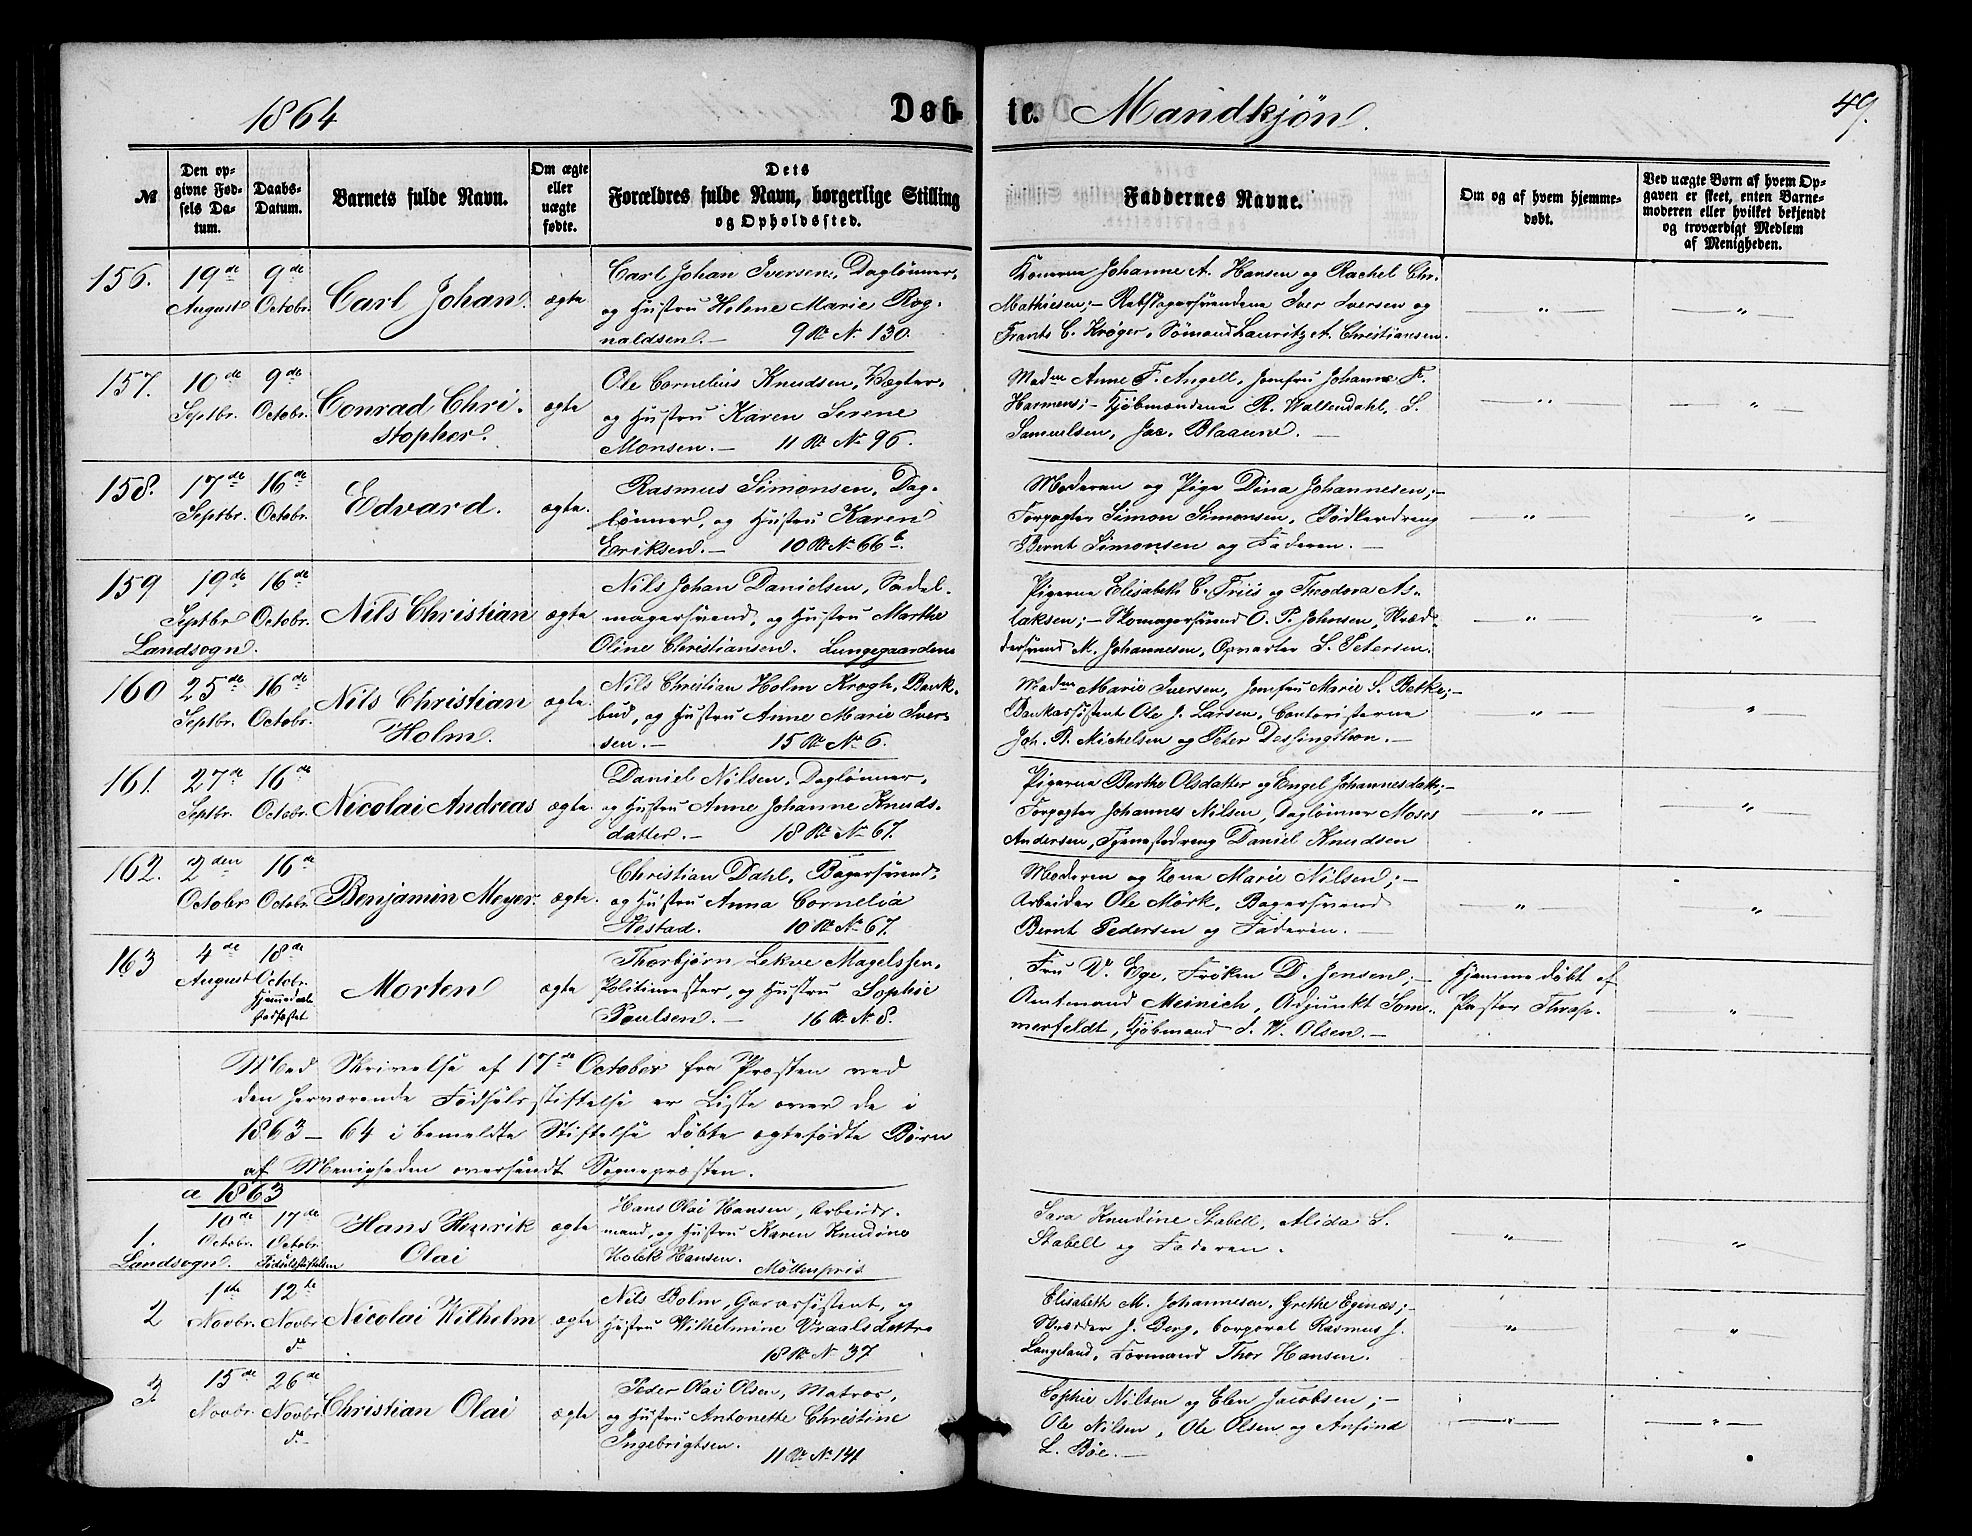 1864 Døb-te. Mandkjøn. 49.
№
Den opgivne Fødsels Datum.
Daabs-Datum.
Barnets fulde Navn.
Om ægte eller uægte fødte.
Dets Forældres fulde Navn, borgerlige Stilling og Opholdssted.
Faddernes Navne.
Om og af hvem hjemmedøbt.
Ved uægte Børn af hvem Opgaven er skeet, enten Barnemoderen eller hvilket bekjendt og troværdigt Medlem af Menigheden.
156. 19de August 9de Octobr. Carl Johan. ægte
Carl Johan Iversen, Daglønner,
og Hustru Helene Marie Rog-
naldsen. — 9 R. No 130.
Konerne Johanne A. Hansen og Rachel Chr.
Mathiesen; — Rebslagersvendene Iver Iversen og
Frants C. Krøger, Sømand Lauritz A. Christiansen.
— " — — " —
157. 10de Septbr. 9de Octobr. Conrad Chri-
stopher. ægte
Ole Cornelius Knudsen, Vægter,
og Hustru Karen Serene
Monsen. — 11 R. No 96.
Madm Anne F. Angell, Jomfru Johanne F.
Harmens; — Kjøbmændene R. Wallendahl, S.
Samuelsen, Jac. Blaauw. —
— " — — " —
158. 17de Septbr. 16de Octobr. Edvard. ægte.
Rasmus Simonsen, Dag-
lønner, og Hustru Karen
Eriksen. — 10 R. No 66b.
Moderen og Pige Dina Johannesen; —
Forpagter Simon Simonsen, Bødkerdreng
Bernt Simonsen og Faderen. —
— " — — " —
159 19de Septbr 16de Octobr. Nils Christian ægte
Landsogn.
Nils Johan Danielsen, Sadel-
magersvend, og Hustru Marthe
Oline Christiansen. Lungegaarden
Pigerne Elisabeth C. Friis og Theodora As-
laksen; — Skomagersvend O. P. Johnsen, Skræd-
dersvend M. Johannesen, Opvarter S. Petersen.
— " — — " —
160 25de Septbr. 16de Octobr. Nils Christian
Holm. ægte.
Nils Christian Holm Krogh, Bank-
bud, og Hustru Anne Marie Iver-
sen. — 15 R. No 6.
Madm Marie Iversen, Jomfru Marie S. Betke; —
Bankassistent Ole J. Larsen, Contoristerne
Joh. B. Michelsen og Peter Dessingthon. —
— " — — " —
161. 27de Septbr. 16de Octobr. Nicolai Andreas ægte.
Daniel Nilsen, Daglønner,
og Hustru Anne Johanne Knuds-
datter. — 18 R. No 67.
Pigerne Berthe Olsdatter og Engel Johannesdatter; —
Forpagter Johannes Nilsen, Daglønner Moses
Andersen, Tjenestedreng Daniel Knudsen
— " — — " —
162. 2den October 16de Octobr. Benjamin Meyer. ægte.
Christian Dahl, Bagersvend,
og Hustru Anna Cornelia
Hestad. 10 R. No 67.
Moderen og Kone Marie Nilsen; —
Arbeider Ole Mørk, Bagersvend
Bernt Pedersen og Faderen. —
— " — — " —
163 4de August 18de Octobr. Hjemmedaab stadfæstet Morten ægte
Thorbjørn Lekve Magelssen,
Politimester, og Hustru Sophie
Poulsen. — 16 R. No 8.
Fru V. Ege, Frøken D. Jensen; —
Amtmand Meinich, Adjunkt Som-
merfeldt, Kjøbmand J. W. Olsen. —
Hjemmedøbt af
Pastor Thrap.
— " —
Med Skrivelse af 17de October fra Præsten ved
den herværende Fødselsstiftelse er Liste over de i
1863—64 i bemeldte Stiftelse døbte ægtefødte Børn
af Menigheden oversendt Sognepræsten.
a 1863
1. 10de Octobr. 17de Octobr. Fødselsstiftelsen Hans Henrik
Olai ægte
Landsogn.
Hans Olai Hansen, Arbeids-
mand, og Hustru Karen Knudine
Holck Hansen. Möllenpris
Sara Knudine Stabell, Alida S.
Stabell og Faderen.
— " — — " —
2 1ste Novbr. 12te Novbr do Nicolai Wilhelm ægte
Nils Bolm, Gasassistent, og
Hustru Wilhelmine Vraalsdattr
18 R. No 37
Elisabeth M. Johannesen, Grethe Eginæs; —
Skrædder J. Berg, Corporal Rasmus J.
Langeland, Formand Thor Hansen.
— " — — " —
3 15de Novbr. 26de Novbr do Christian Olai ægte
Peder Olai Olsen, Matros,
og Hustru Antonette Christine
Ingebrigtsen. 11 R. No 141
Sophie Nilsen og Elen Jacobsen; —
Ole Nilsen, Ole Olsen og Anfind
L. Bøe. —
— " — — " —